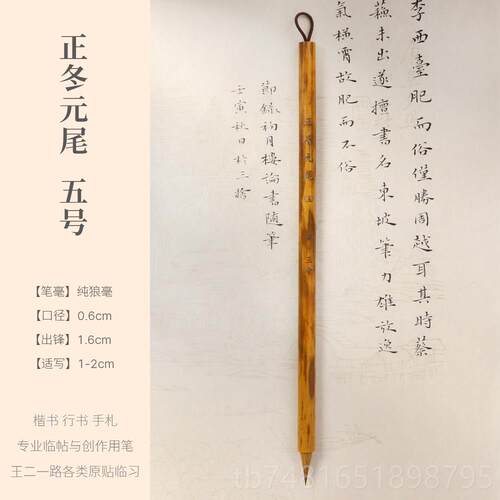 正冬元尾 五号
【笔毫】纯狼毫
【口径】0.6cm
【出锋】1.6cm
【适写】1-2cm
楷书 行书 手札
专业临帖与创作用笔
王二一路各类原贴临习
李西臺肥而俗僅勝周越耳其時蔡
蘇未出遂擅書名東坡筆力雄放逸
氣橫霄故肥而不俗
節錄初月樓論書隨筆
壬寅秋日於三
正冬元尾
tb7481651898795